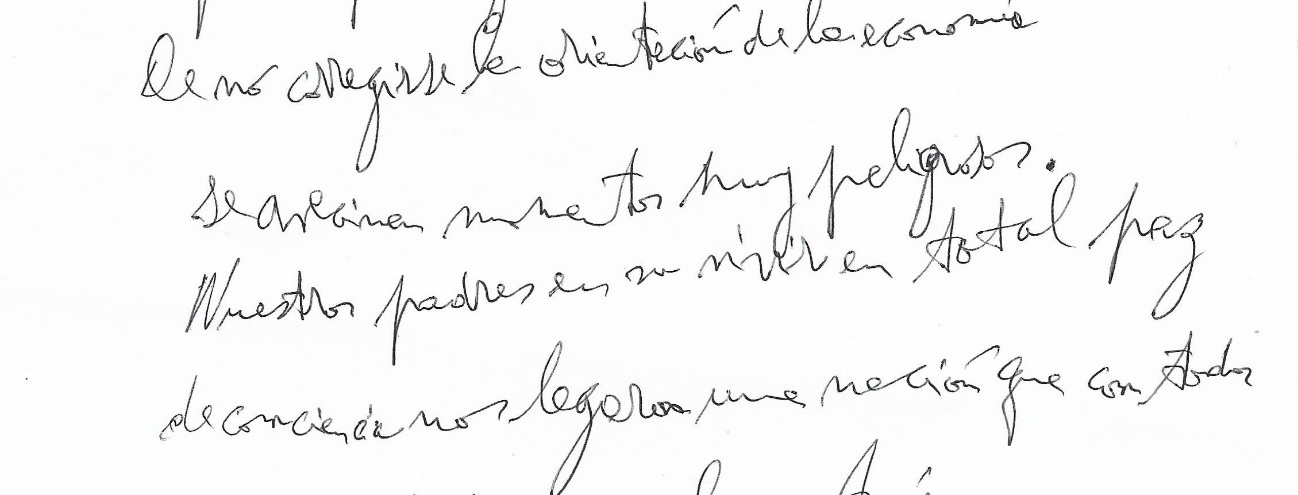 De no corregirse la orientación de la economía
se avecinan momentos muy peligrosos.
Nuestros padres en su vivir en total paz
de conciencia nos legaron una nación que con todos